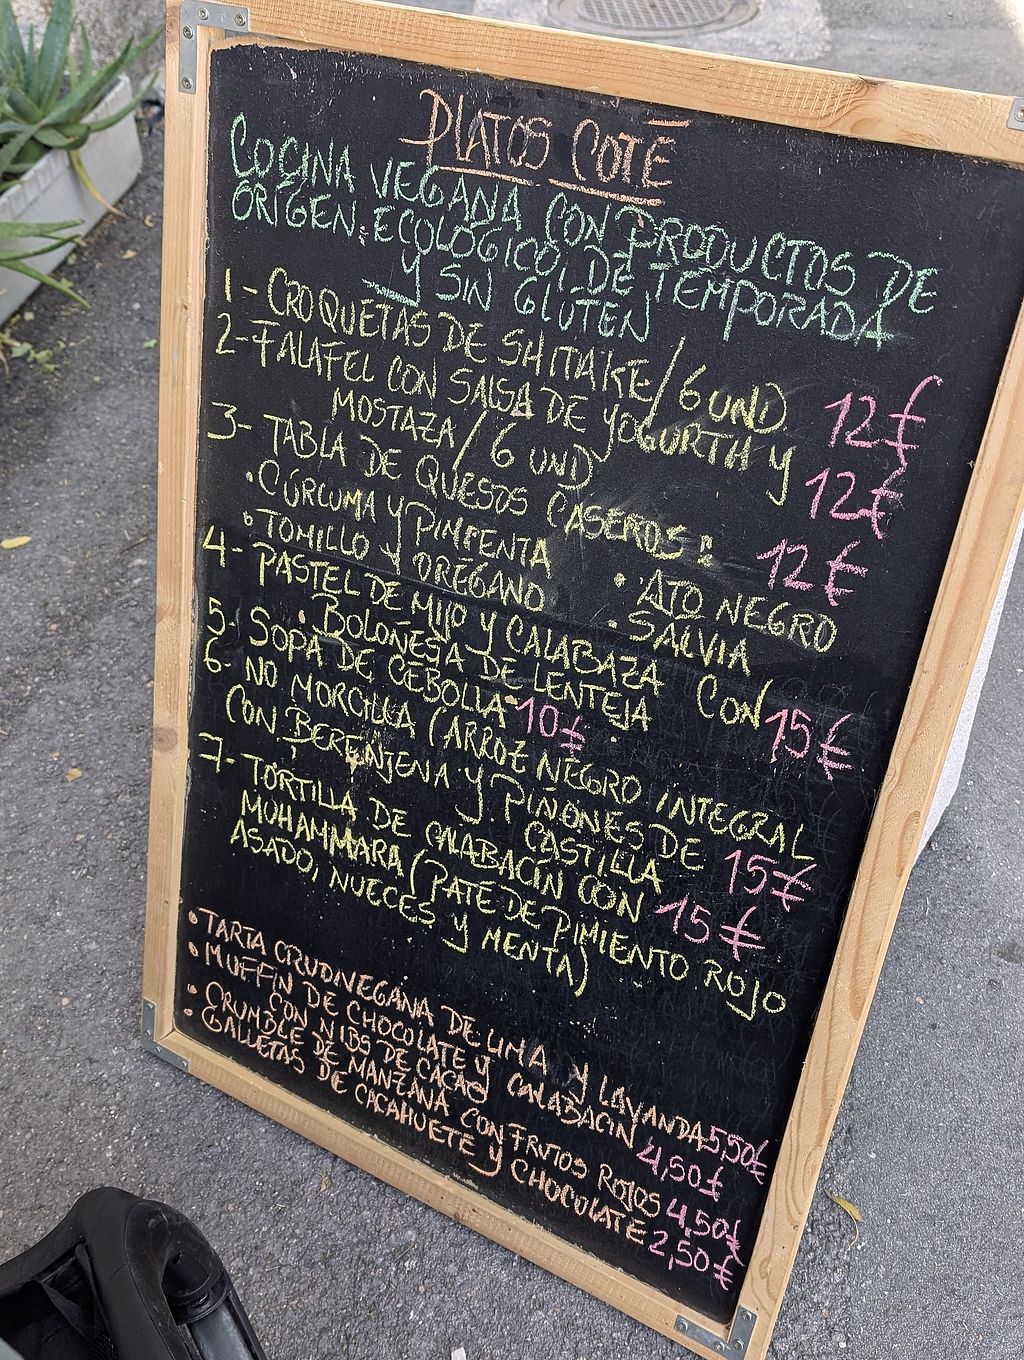 PLATOS COTĒ
COCINA VEGANA CON PRODUCTOS DE
ORIGEN ECOLÓGICO, DE TEMPORADA
Y SIN GLUTEN
1- CROQUETAS DE SHITAKE/6 UND 12€
2- FALAFEL CON SALSA DE YOGURTH Y
MOSTAZA/6 UND 12€
3- TABLA DE QUESOS CASEROS: 12€
• CÚRCUMA Y PIMIENTA • AJO NEGRO
• TOMILLO Y ORÉGANO • SALVIA
4- PASTEL DE MIJO Y CALABAZA CON
• BOLOÑESA DE LENTEJA 15€
5- SOPA DE CEBOLLA 10€
6- NO MORCILLA (ARROZ NEGRO INTEGRAL
CON BERENJENA Y PIÑONES DE
CASTILLA 15€
7- TORTILLA DE CALABACÍN CON 15€
MUHAMMARA (PATÉ DE PIMIENTO ROJO
ASADO, NUECES Y MENTA)
• TARTA CRUDIVEGANA DE LIMA Y LAVANDA 5,50€
• MUFFIN DE CHOCOLATE Y CALABACÍN
CON NIBS DE CACAO 4,50€
• CRUMBLE DE MANZANA CON FRUTOS ROJOS 4,50€
• GALLETAS DE CACAHUETE Y CHOCOLATE 2,50€